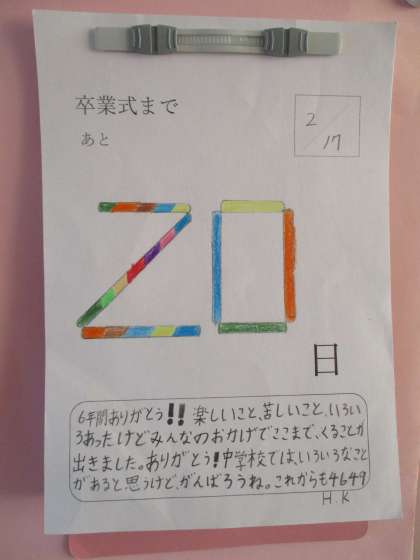 卒業式まで
あと
2/17
20
日
6年間ありがとう!! 楽しいこと、苦しいこと、いろい
ろあったけどみんなのおかげでここまで、くることが
出きました。ありがとう!中学校では、いろいろなこと
があると思うけど、がんばろうね。これからも4649
H.K